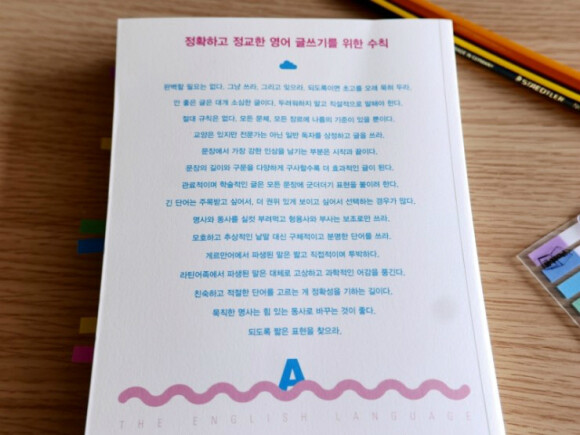 정확하고 정교한 영어 글쓰기를 위한 수칙
완벽할 필요는 없다. 그냥 쓰라. 그리고 잊으라. 되도록이면 초고를 오래 묵혀 두라.
안 좋은 글은 대개 소심한 글이다. 두려워하지 말고 직설적으로 말해야 한다.
절대 규칙은 없다. 모든 문체, 모든 장르에 나름의 기준이 있을 뿐이다.
교양은 있지만 전문가는 아닌 일반 독자를 상정하고 글을 쓰라.
문장에서 가장 강한 인상을 남기는 부분은 시작과 끝이다.
문장의 길이와 구문을 다양하게 구사할수록 더 효과적인 글이 된다.
관료적이며 학술적인 글은 모든 문장에 군더더기 표현을 붙이려 한다.
긴 단어는 주목받고 싶어서, 더 권위 있게 보이고 싶어서 선택하는 경우가 많다.
명사와 동사를 실컷 부려먹고 형용사와 부사는 보조로만 쓰라.
모호하고 추상적인 낱말 대신 구체적이고 분명한 단어를 쓰라.
게르만어에서 파생된 말은 짧고 직접적이며 투박하다.
라틴어족에서 파생된 말은 대체로 고상하고 과학적인 어감을 풍긴다.
친숙하고 적절한 단어를 고르는 게 정확성을 기하는 길이다.
묵직한 명사는 힘 있는 동사로 바꾸는 것이 좋다.
되도록 짧은 표현을 찾으라.
A
THE ENGLISH LANGUAGE
STAEDTLER